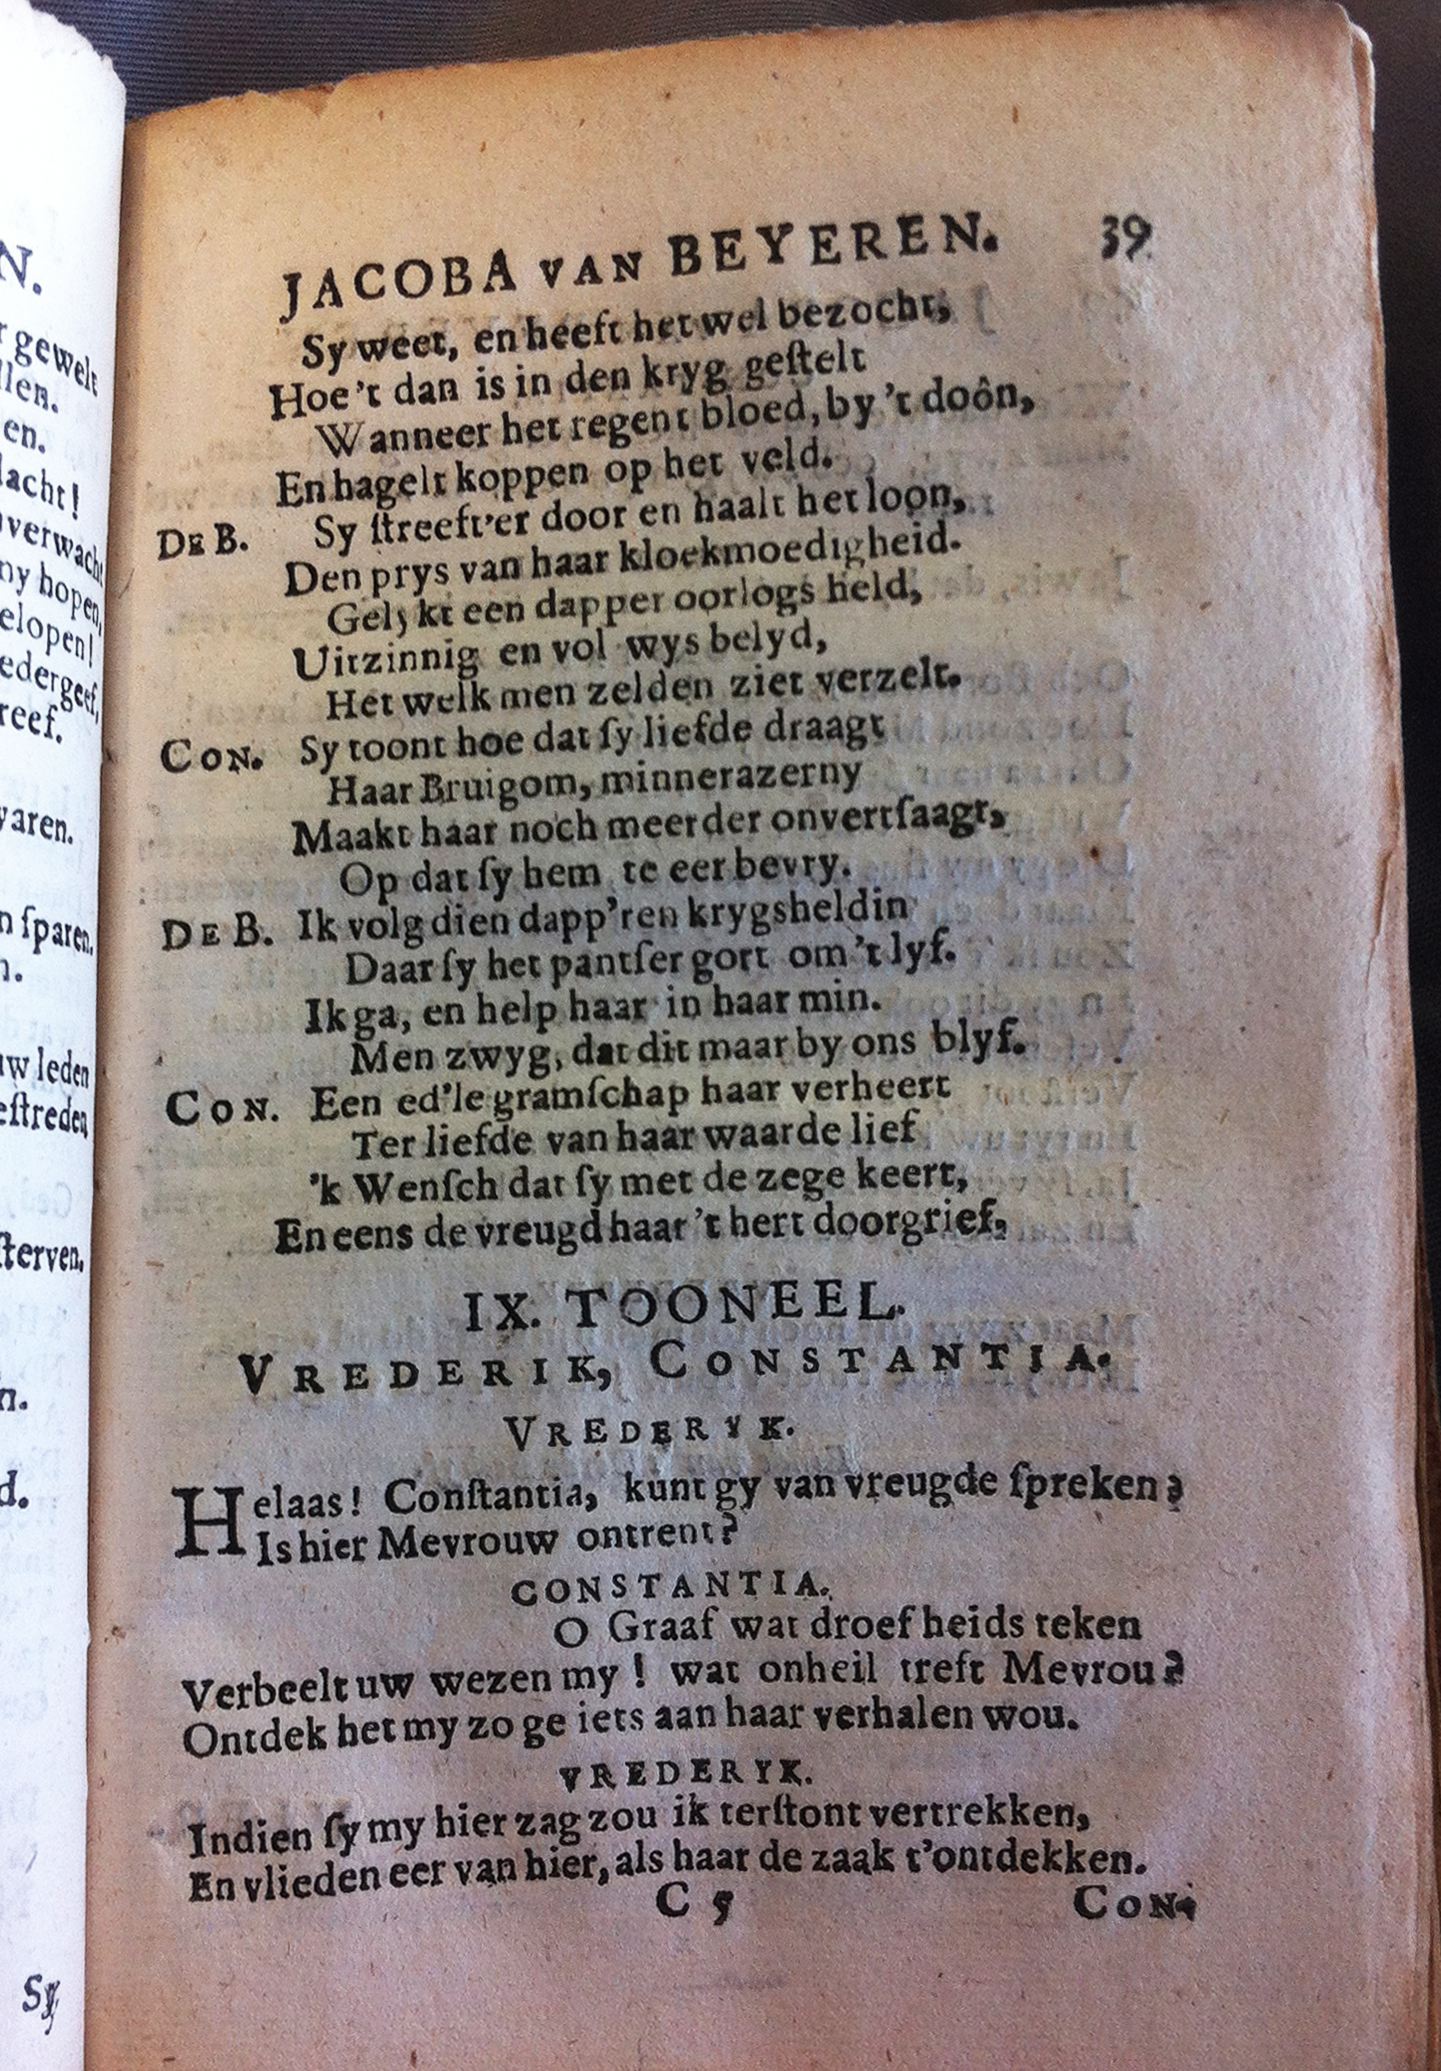 JACOBA VAN BEYEREN. 39
Sy weet, en heeft het wel bezocht,
Hoe 't dan is in den kryg geſtelt
Wanneer het regent bloed, by 't doôn,
En hagelt koppen op het veld.
DE B. Sy ſtreeft'er door en haalt het loon,
Den prys van haar kloekmoedigheid.
Gelykt een dapper oorlogs held,
Uitzinnig en vol wys belyd,
Het welk men zelden ziet verzelt.
CON. Sy toont hoe dat ſy liefde draagt
Haar Bruigom, minnerazerny
Maakt haar noch meerder onvertſaagt,
Op dat ſy hem te eer bevry.
DE B. Ik volg dien dapp'ren krygsheldin
Daar ſy het pantſer gort om 't lyf.
Ik ga, en help haar in haar min.
Men zwyg, dat dit maar by ons blyf.
CON. Een ed'le gramſchap haar verheert
Ter liefde van haar waarde lief
'k Wenſch dat ſy met de zege keert,
En eens de vreugd haar 't hert doorgrief,
IX. TOONEEL.
VREDERIK, CONSTANTIA.
VREDERYK.
Helaas! Conſtantia, kunt gy van vreugde ſpreken?
Is hier Mevrouw ontrent?
CONSTANTIA.
O Graaf wat droef heids teken
Verbeelt uw wezen my! wat onheil treft Mevrou?
Ontdek het my zo ge iets aan haar verhalen wou.
VREDERYK.
Indien ſy my hier zag zou ik terſtont vertrekken,
En vlieden eer van hier, als haar de zaak t'ontdekken.
C 5 CON.
N.
gewelt
llen.
en.
lacht!
verwacht
ny hopen,
elopen!
edergeef,
reef.
varen.
n ſparen.
n.
uw leden
eſtreden
ſterven.
n.
d.
Sy